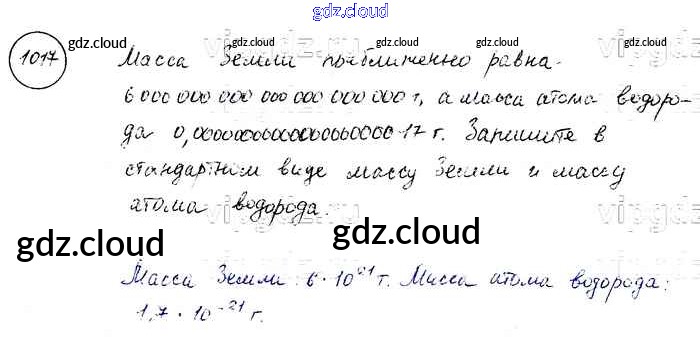 gdz.cloud
1017
Масса Земли приближенно равна
6 000 000 000 000 000 000 000 т, а масса атома водоро-
да 0, 17 г. Запишите в
стандартном виде массу Земли и массу
атома водорода.
gdz.cloud
gdz.cloud
gdz.cloud
gdz.cloud
gdz.cloud
gdz.cloud
gdz.cloud
gdz.cloud
Масса Земли: 6 · 10²¹ т. Масса атома водорода:
1,7 · 10⁻²¹ г.